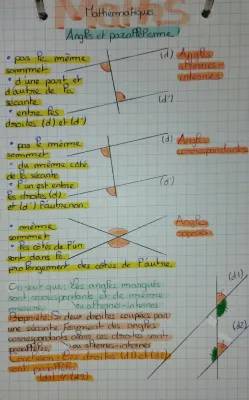 MATHS
Mathématiques
Angles et parallélisme
• pas le même
sommet
• d'une part et
d'autre de la
sécante
• entre les
droites (d) et (d')
(d)
(d')
Angles
alternes-
internes
• pas le même
sommet
• du même côté
de la sécante
• l'un est entre
les droites (d)
et (d') l'autre non.
(d)
(d')
Angles
correspondants
• même
sommet
• les côtés de l'un
sont dans le
prolongement des côtés de l'autre.
Angles
opposés
On sait que: Les angles marqués
sont correspondants et de même
mesure. ou alternes-internes
Si deux droites coupées par
une sécante forment des angles
correspondants alors ces droites sont
parallèles. ou alternes-internes
Conclusion: Les droites (d1) et (d2)
sont parallèles
(d1) // (d2)
(d1)
(d2)